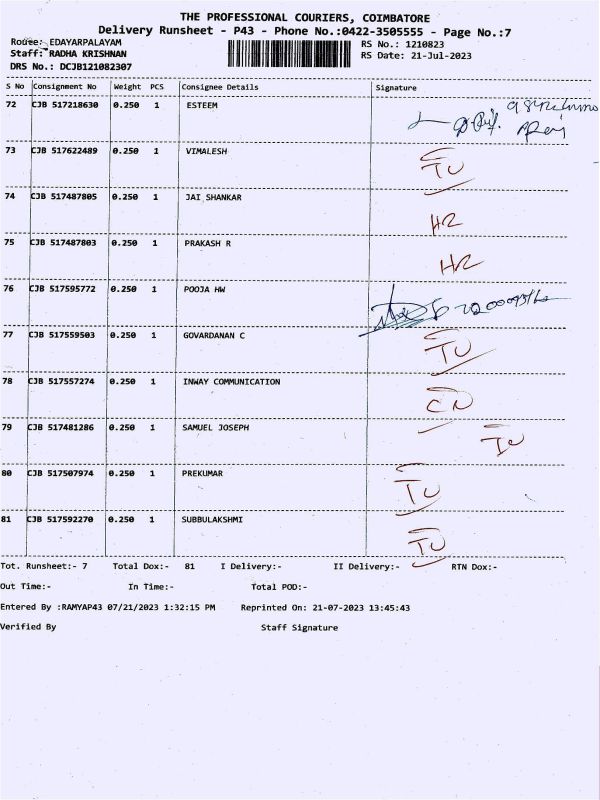 THE PROFESSIONAL COURIERS, COIMBATORE
Delivery Runsheet - P43 - Phone No.:0422-3505555 - Page No.:7
Route: EDAYARPALAYAM
RS No.: 1210823
Staff: RADHA KRISHNAN
RS Date: 21-Jul-2023
DRS No.: DCJB121082307
S No Consignment No Weight PCS Consignee Details Signature
72 CJB 517218630 0.250 1 ESTEEM
73 CJB 517622489 0.250 1 VIMALESH TU
74 CJB 517487805 0.250 1 JAI SHANKAR HR
75 CJB 517487803 0.250 1 PRAKASH R HR
76 CJB 517595772 0.250 1 POOJA HW
77 CJB 517559503 0.250 1 GOVARDANAN C TU
78 CJB 517557274 0.250 1 INWAY COMMUNICATION CN
79 CJB 517481286 0.250 1 SAMUEL JOSEPH TU
80 CJB 517507974 0.250 1 PREKUMAR TU
81 CJB 517592270 0.250 1 SUBBULAKSHMI TU
Tot. Runsheet:- 7 Total Dox:- 81 I Delivery:- II Delivery:- RTN Dox:-
Out Time:- In Time:- Total POD:-
Entered By :RAMYAP43 07/21/2023 1:32:15 PM Reprinted On: 21-07-2023 13:45:43
Verified By Staff Signature